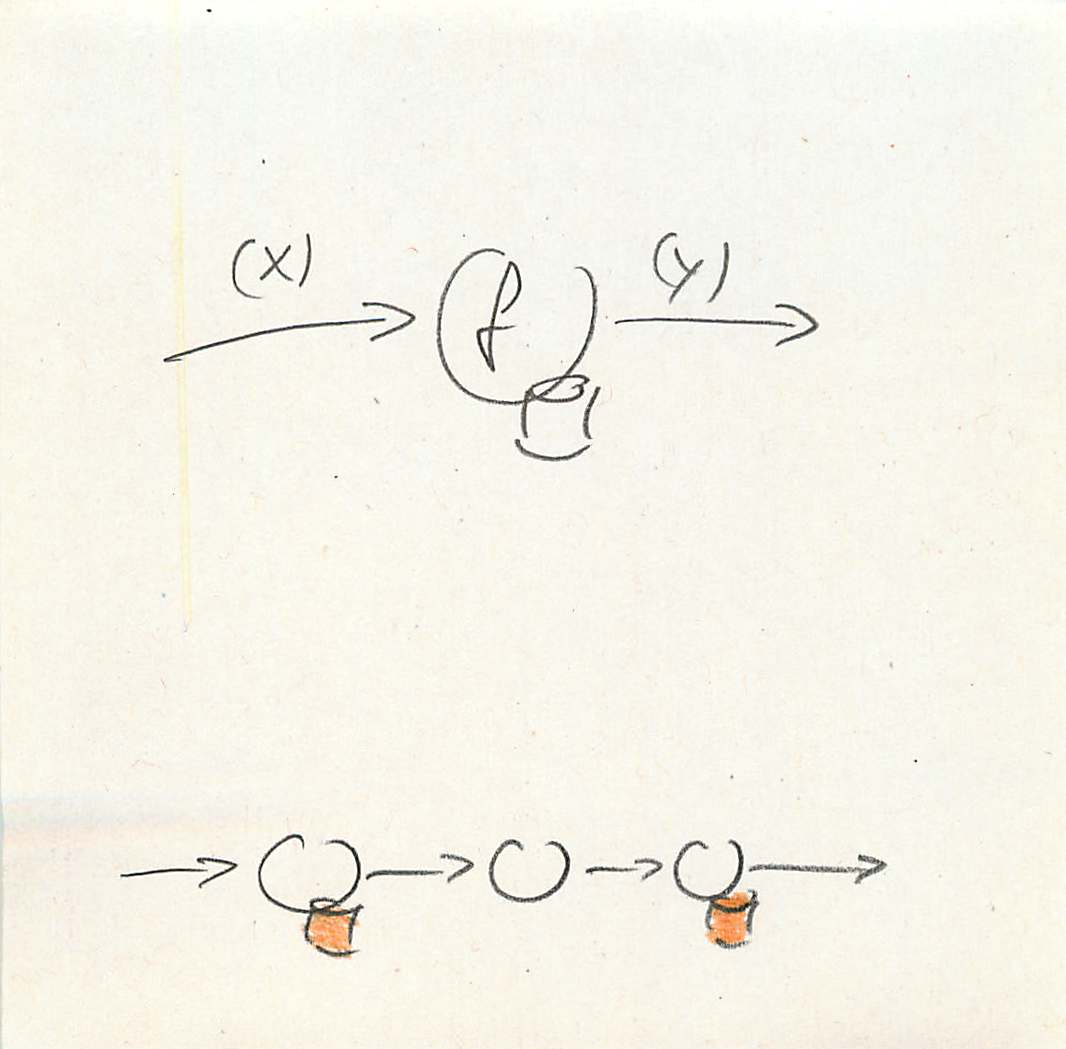 (x) f (y)